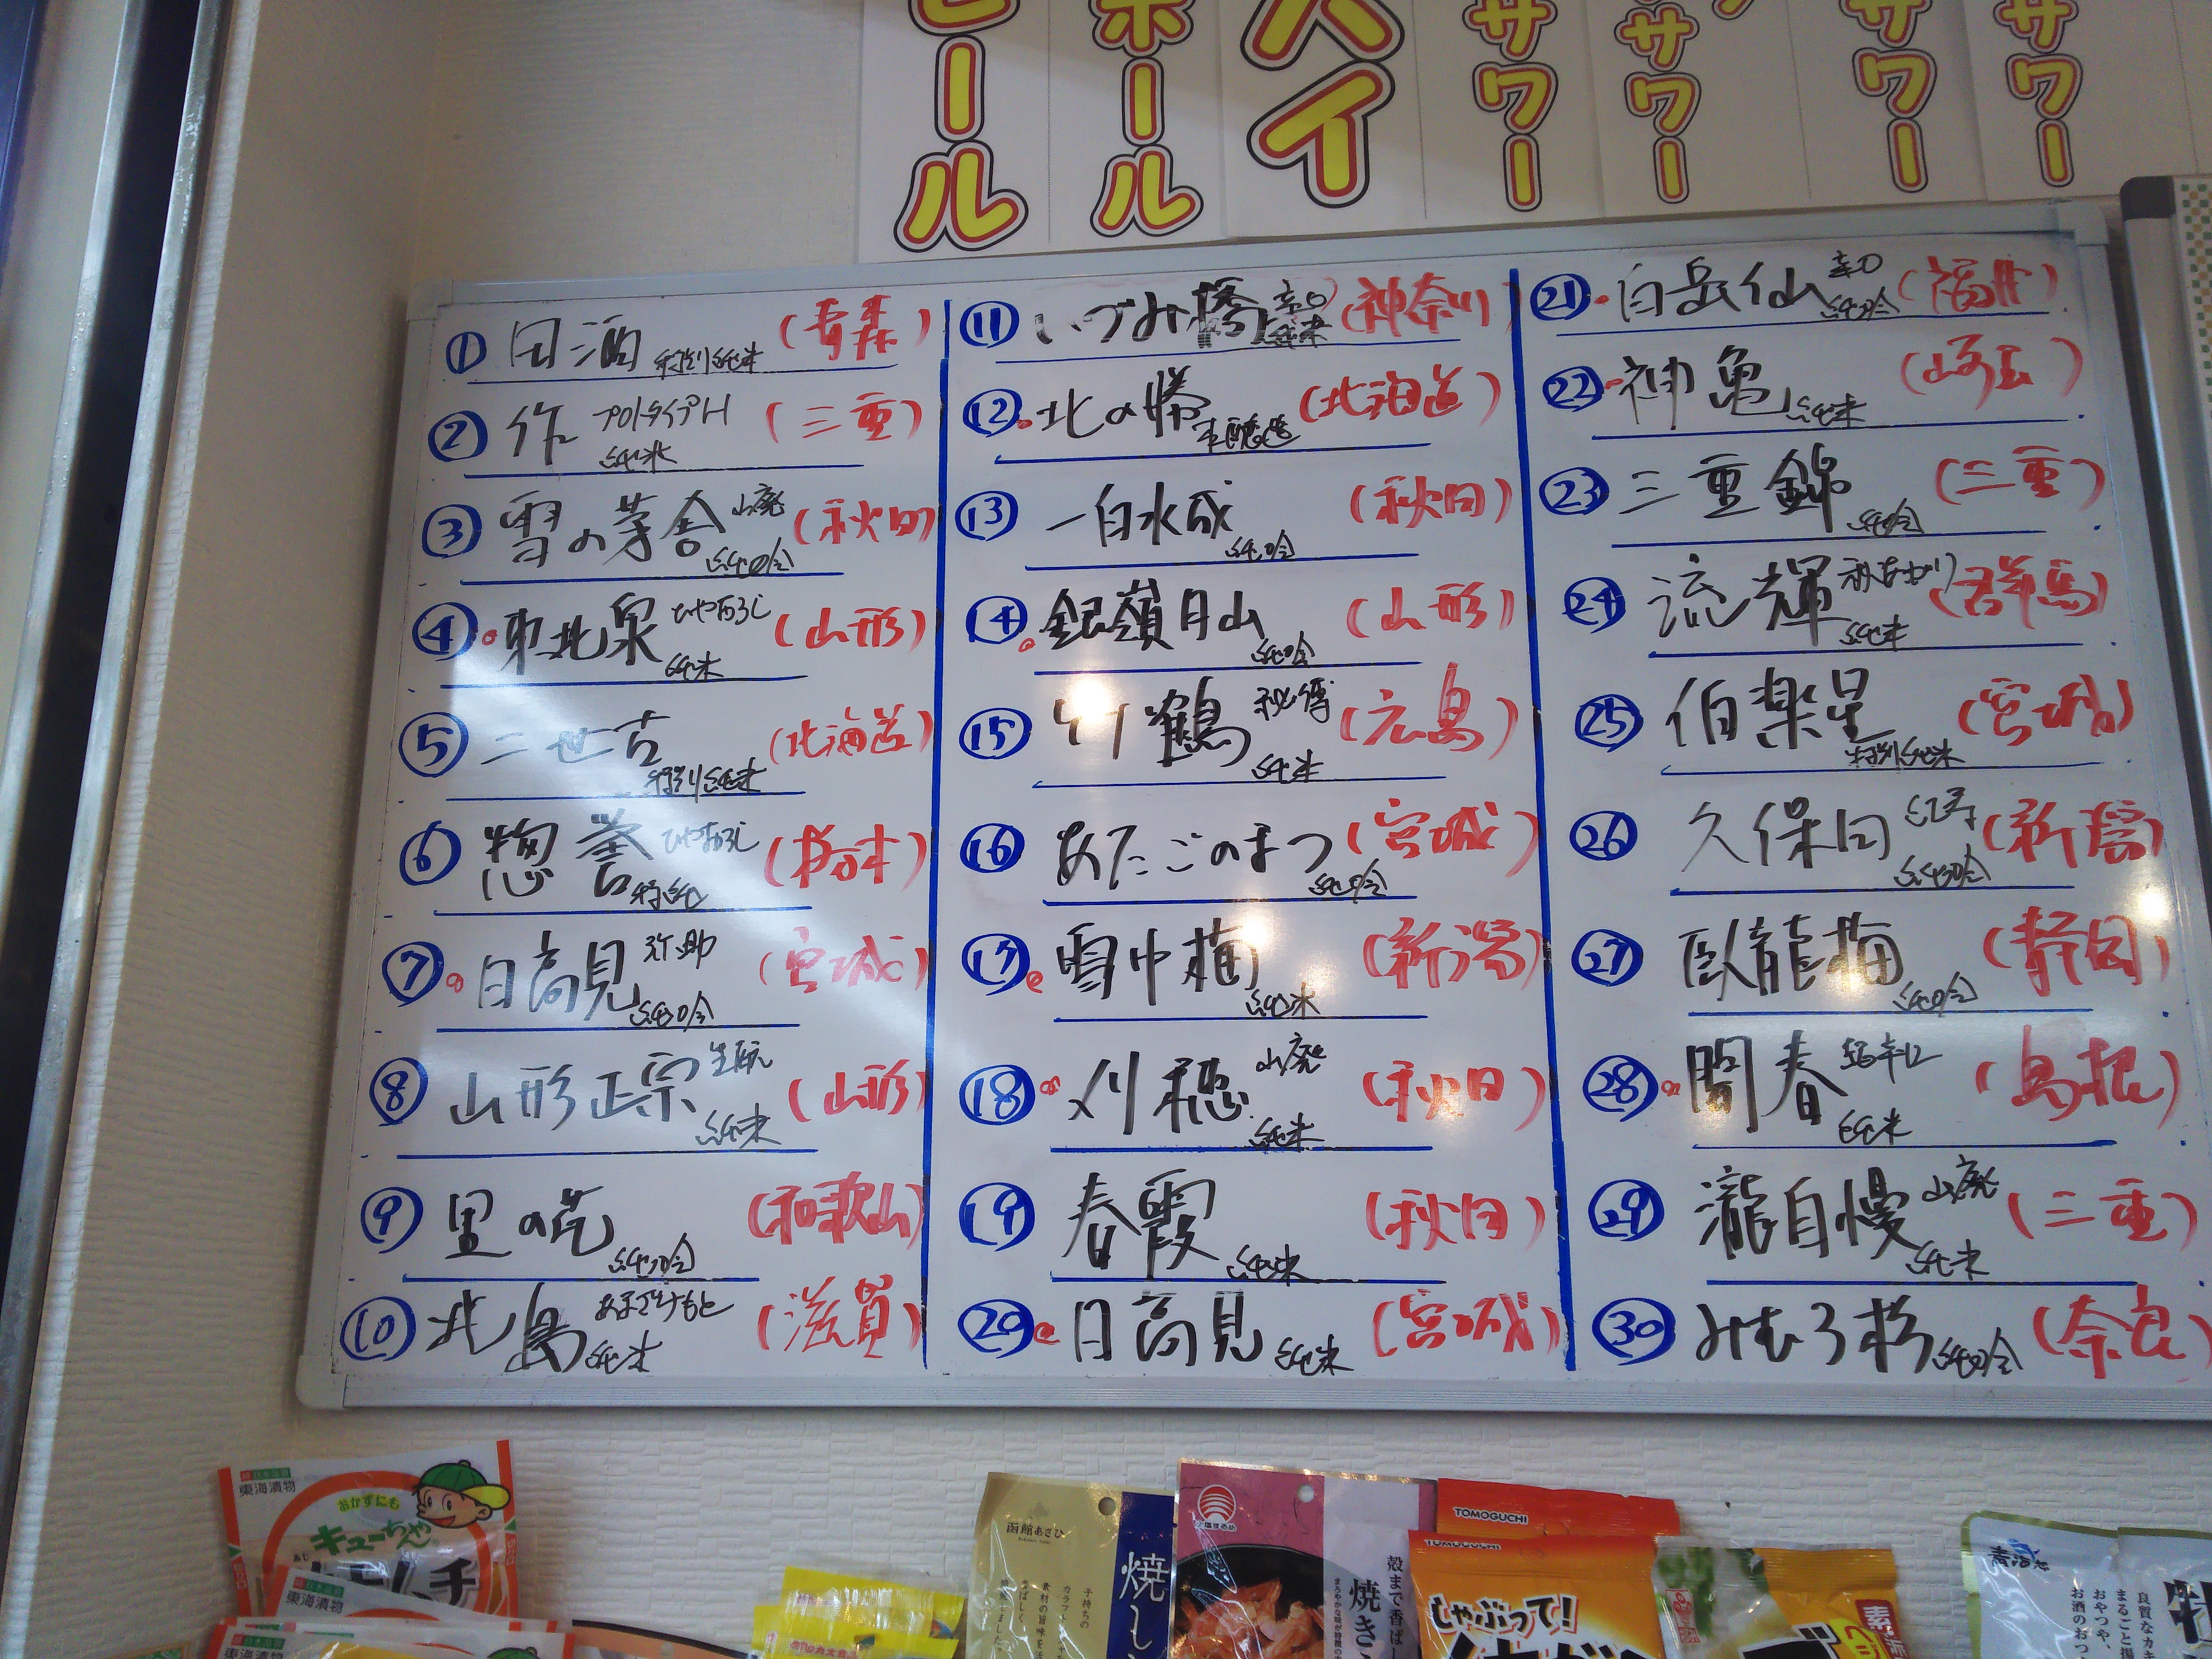 ビール
ホール
ハイ
サワー
サワー
サワー
サワー
① 田酒 特別純米 (青森)
② 作 プロトタイプH 純米 (三重)
③ 雪の茅舎 山廃 純吟 (秋田)
④ 東北泉 ひやおろし 純米 (山形)
⑤ 二世古 特別純米 (北海道)
⑥ 惣誉 ひやおろし 特純 (栃木)
⑦ 日高見 弥助 純吟 (宮城)
⑧ 山形正宗 生酛 純米 (山形)
⑨ 黒の花 純吟 (和歌山)
⑩ 北島 あまざけもと 純米 (滋賀)
⑪ いづみ橋 辛口 純米 (神奈川)
⑫ 北の勝 本醸造 (北海道)
⑬ 一白水成 純吟 (秋田)
⑭ 銀嶺月山 純吟 (山形)
⑮ 竹鶴 秘傳 純米 (広島)
⑯ あたごのまつ 純吟 (宮城)
⑰ 雪中梅 純米 (新潟)
⑱ 刈穂 山廃 純米 (秋田)
⑲ 春霞 純米 (秋田)
⑳ 日高見 純米 (宮城)
㉑ 白岳仙 辛口 純吟 (福井)
㉒ 神亀 純米 (埼玉)
㉓ 三重錦 純吟 (三重)
㉔ 流輝 秋あがり 純米 (群馬)
㉕ 伯楽星 特別純米 (宮城)
㉖ 久保田 紅寿 純吟 (新潟)
㉗ 臥龍梅 純吟 (静岡)
㉘ 開春 超辛口 純米 (島根)
㉙ 瀧自慢 山廃 純米 (三重)
㉚ みむろ杉 純吟 (奈良)
東海漬物
おかずにも
キューちゃん
東海漬物
函館あさひ
子持ちの
焼し
殻まで香ばし
焼き
TOMOGUCHI
TOMOGUCHI
しゃぶって!
良質なカキ
まるごと揚
おやつや、
お酒のおつ